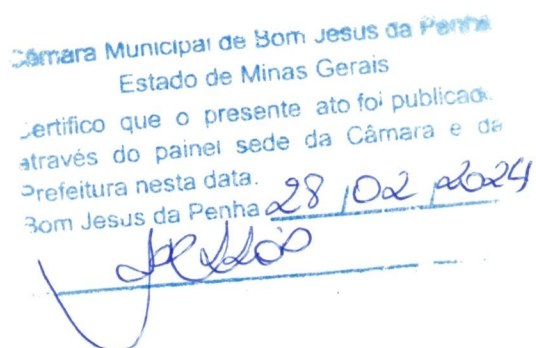 Câmara Municipal de Bom Jesus da Penha
Estado de Minas Gerais
Certifico que o presente ato foi publicado
através do painel sede da Câmara e da
Prefeitura nesta data.
Bom Jesus da Penha 28/02/2024